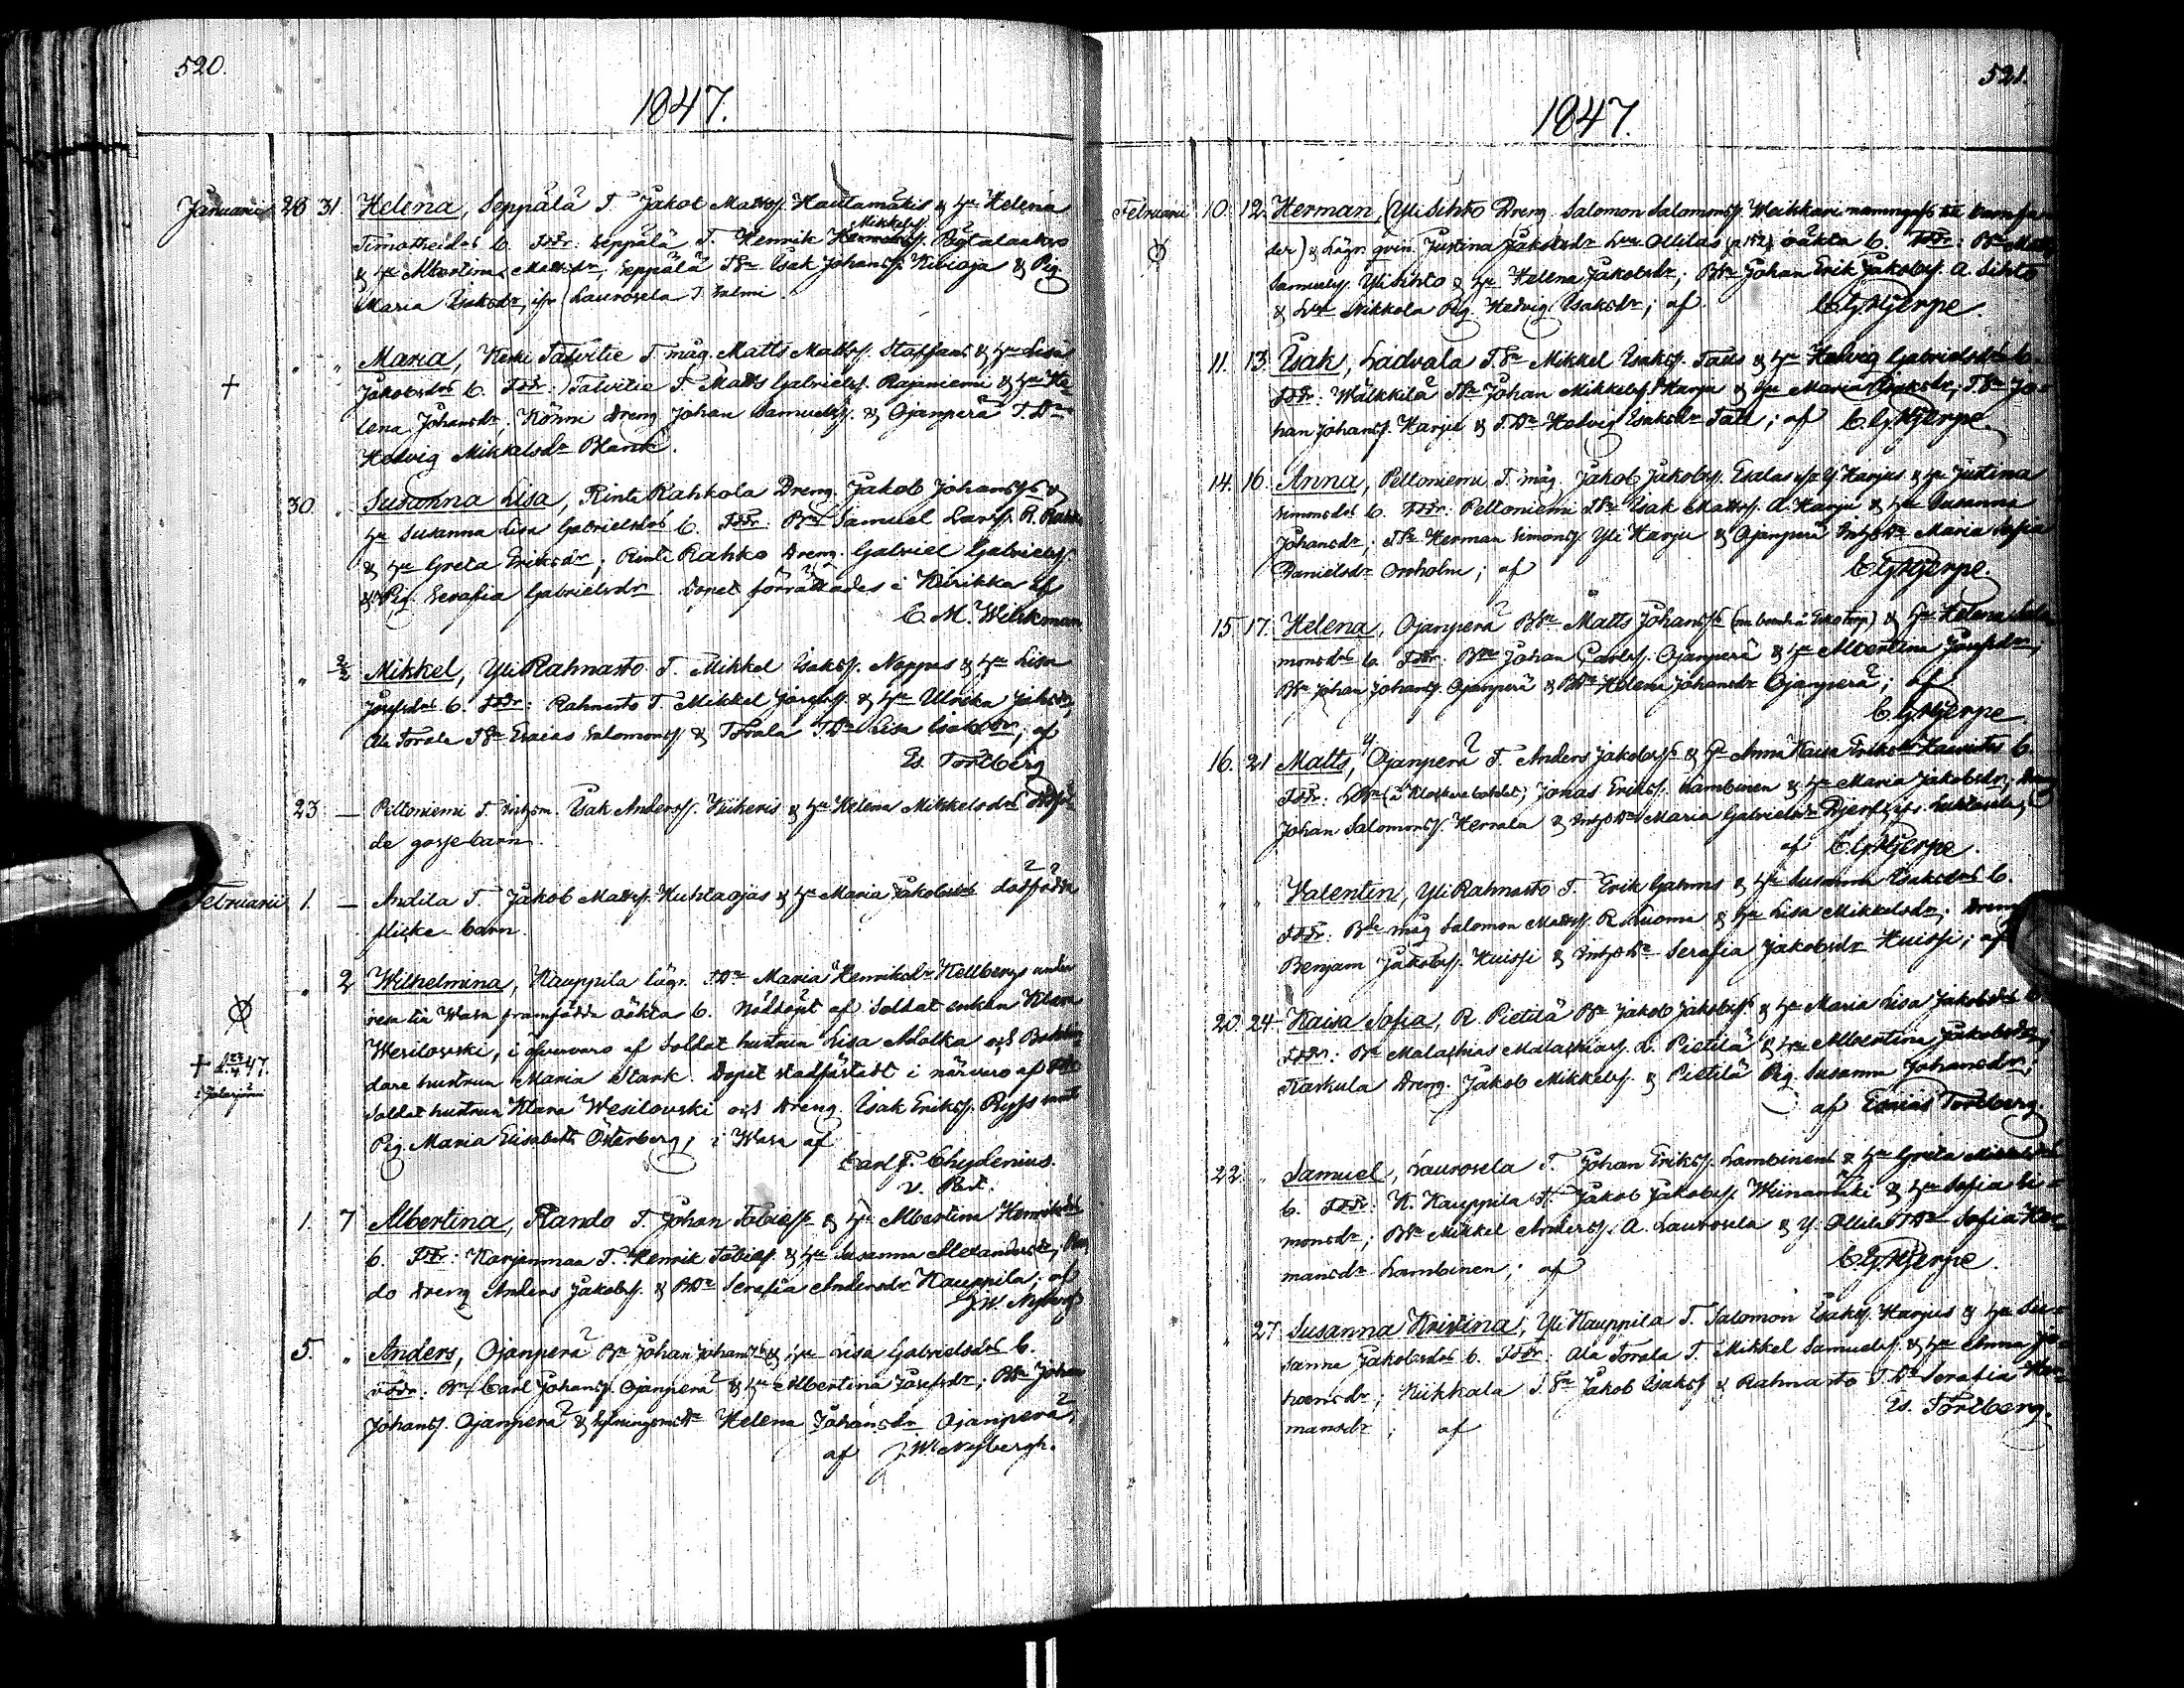 520.
1847.
Januarii 28 31. Helena, Seppälä T. Jakob Matts. Hautamäkis & Hu Helena
Mikkelss.
Timotheidos b. Fddr: Seppälä T. Henrik
& Hu Albertina Mattsdr, Seppälä TSn Isak Johanss. Kivioja & Pig.
Maria Isaksdr, ifr Laurosela T. Salmi.
" " Maria, Talvitie T. måg. Matts Mattss. Staffans & Hu Lisa
+ Jakobsdos b. Fddr: Talvitie T. Matts Gabrielss. Rajaniemi & Hu He-
lena Johansdr; Dreng Johan Samuelss. & Ojanperä T.Dr
Hedvig Mikkelsdr Blank.
30. " Susanna Lisa, Rinta Rahkola Dreng. Jakob Johanss. &
Hu Susanna Lisa Gabrielsdos b. Fddr: Samuel Larss. R. Rahko
& Hu Greta Eriksdr; Rinta Rahko Dreng. Gabriel Gabrielss.
& Pig. Serafia Gabrielsdr. Dopet förrättades i Kurikka af
C. M. Welikman.
" 2/2 Mikkel, Yli Rahnasto T. Mikkel Isakss. Noppas & Hu Lisa
Josefsdos b. Fddr: Rahnasto T. Mikkel Josefss. & Hu Ulrika
Ala Torala TSn Esaias Salomonss. & Torala TDr Lisa Isaksdr; af
Es. Tordberg
23. — Peltoniemi T. Inhysm. Isak Anderss. & Hu Helena Mikkelsdos dödföd-
de gossebarn.
Februarii 1. — Andila T. Jakob Matts. Huhtaojas & Hu Maria Jakobsdos dödfödda
flicke-barn.
" 2 Wilhelmina, Kauppila lägr. TDr Maria Henriksdr Kellbergs under
resa till Wasa framfödda oäkta b. Nöddöpt af Soldat enkan Klara
Wesilowski, i öfvervaro af Soldat hustrun Lisa Adolka och
+ 47. dare hustrun Maria Stark. Dopet stadfästadt i närvaro af
Soldat hustrun Klara Wesilowski och Dreng. Isak Erikss. Ryss samt
Pig. Maria Elisabeth Österberg; i Wasa af
Carl F. Chydenius.
v. Pst.
1. 7 Albertina, Rando T. Johan Tobiass. & Hu Albertina Henriksdos
b. Fddr: Karjanmaa T. Henrik Tobiass. & Hu Susanna Alexandersdr, Ran-
do Dreng Anders Jakobss. & BDr Serafia Andersdr Kauppila; af
J.W. Nybergh
5. " Anders, Ojanperä Bn Johan Johanss. & Hu Lisa Gabrielsdos b.
Fddr: Bn Carl Johanss. Ojanperä & Hu Albertina Josefsdr; BSn Johan
Johanss. Ojanperä & Helena Johansdr Ojanperä,
af J.W. Nybergh.
521.
1847.
Februarii 10. 12. Herman, (Yli Sihto Dreng. Salomon Salomonss. Weikkari till barnfa-
der) & Lägr. qvin. Justina Jakobsdr Ollilas (p. 152) oäkta b. Fddr: Bn Matts
Samuelss. Yli Sihto & Hu Helena Jakobsdr; BSn Johan Erik Jakobss. A. Sihto
& Nikkola Pig. Hedvig Isaksdr; af C.G. Hjerpe.
11. 13. Isak, Ladvala TSn Mikkel Isakss. Talls & Hu Hedvig Gabrielsdos b.
Fddr: Wälkkilä TSn Johan Mikkelss. Harju & Hu Maria Isaksdr, TSn Jo-
han Johanss. Harju & T.Dr Hedvig Isaksdr Tall; af C.G. Hjerpe.
14. 16. Anna, Peltoniemi T. måg. Jakob Jakobss. Esalas & Hu Justina
Simonsdos b. Fddr: Peltoniemi TSn Isak Matts. A. Harju & Hu Susanna
Johansdr; TSn Herman Simonss. Yli Harju & Ojanperä Maria Sofia
Danielsdr Onholm; af C.G. Hjerpe.
15. 17. Helena, Ojanperä BSn Matts Johanss. & Hu Helena Salo-
monsdos b. Fddr: Bn Johan Carlss. Ojanperä & Hu Albertina Josefsdr;
BSn Johan Johanss. Ojanperä & BDr Helena Johansdr Ojanperä; af
C.G. Hjerpe
16. 21 Matts, Y. Ojanperä T. Anders Jakobss. & Hu Anna Kaisa b.
Fddr: Jonas Erikss. Lambinen & Hu Maria Jakobsdr; Dreng
Johan Salomonss. Herrala & Maria Gabrielsdr
af C.G. Hjerpe.
" " Valentin, Yli Rahnasto T. Erik & Hu Susanna Isaksdos b.
Fddr: måg Salomon Matts. R. Luoma & Hu Lisa Mikkelsdr. Dreng
Benjam Jakobss. Huissi & Serafia Jakobsdr Huissi; af
20. 24. Kaisa Sofia, R. Pietilä Bn Jakob Jakobss. & Hu Maria Lisa Jakobsdos b.
Fddr: Bn Malachias Malachiass. L. Pietilä & Hu Albertina Jakobsdr,
Koskula Dreng. Jakob Mikkelss. & Pietilä Pig. Susanna Johansdr;
af Esaias Tordberg.
22. " Samuel, Laurosela T. Johan Erikss. Lambinens & Hu Greta
b. Fddr: K. Kauppila T. Jakob Jakobss. Wiinamäki & Hu Sofia Si-
monsdr; BSn Mikkel Anderss. A. Laurosela & Y. Ollila TDr Sofia Her-
mansdr Lambinen; af C.G. Hjerpe.
" 27 Susanna Kristina, Yli Kauppila T. Salomon Isakss. Harjus & Hu Su-
sanna Jakobsdos b. Fddr: Ala Torala T. Mikkel Samuelss. & Hu Anna Jo-
hansdr; Kiikkala TSn Jakob Isakss. & Rahnasto T.Dr Serafia Her-
mansdr; af Es. Tordberg.